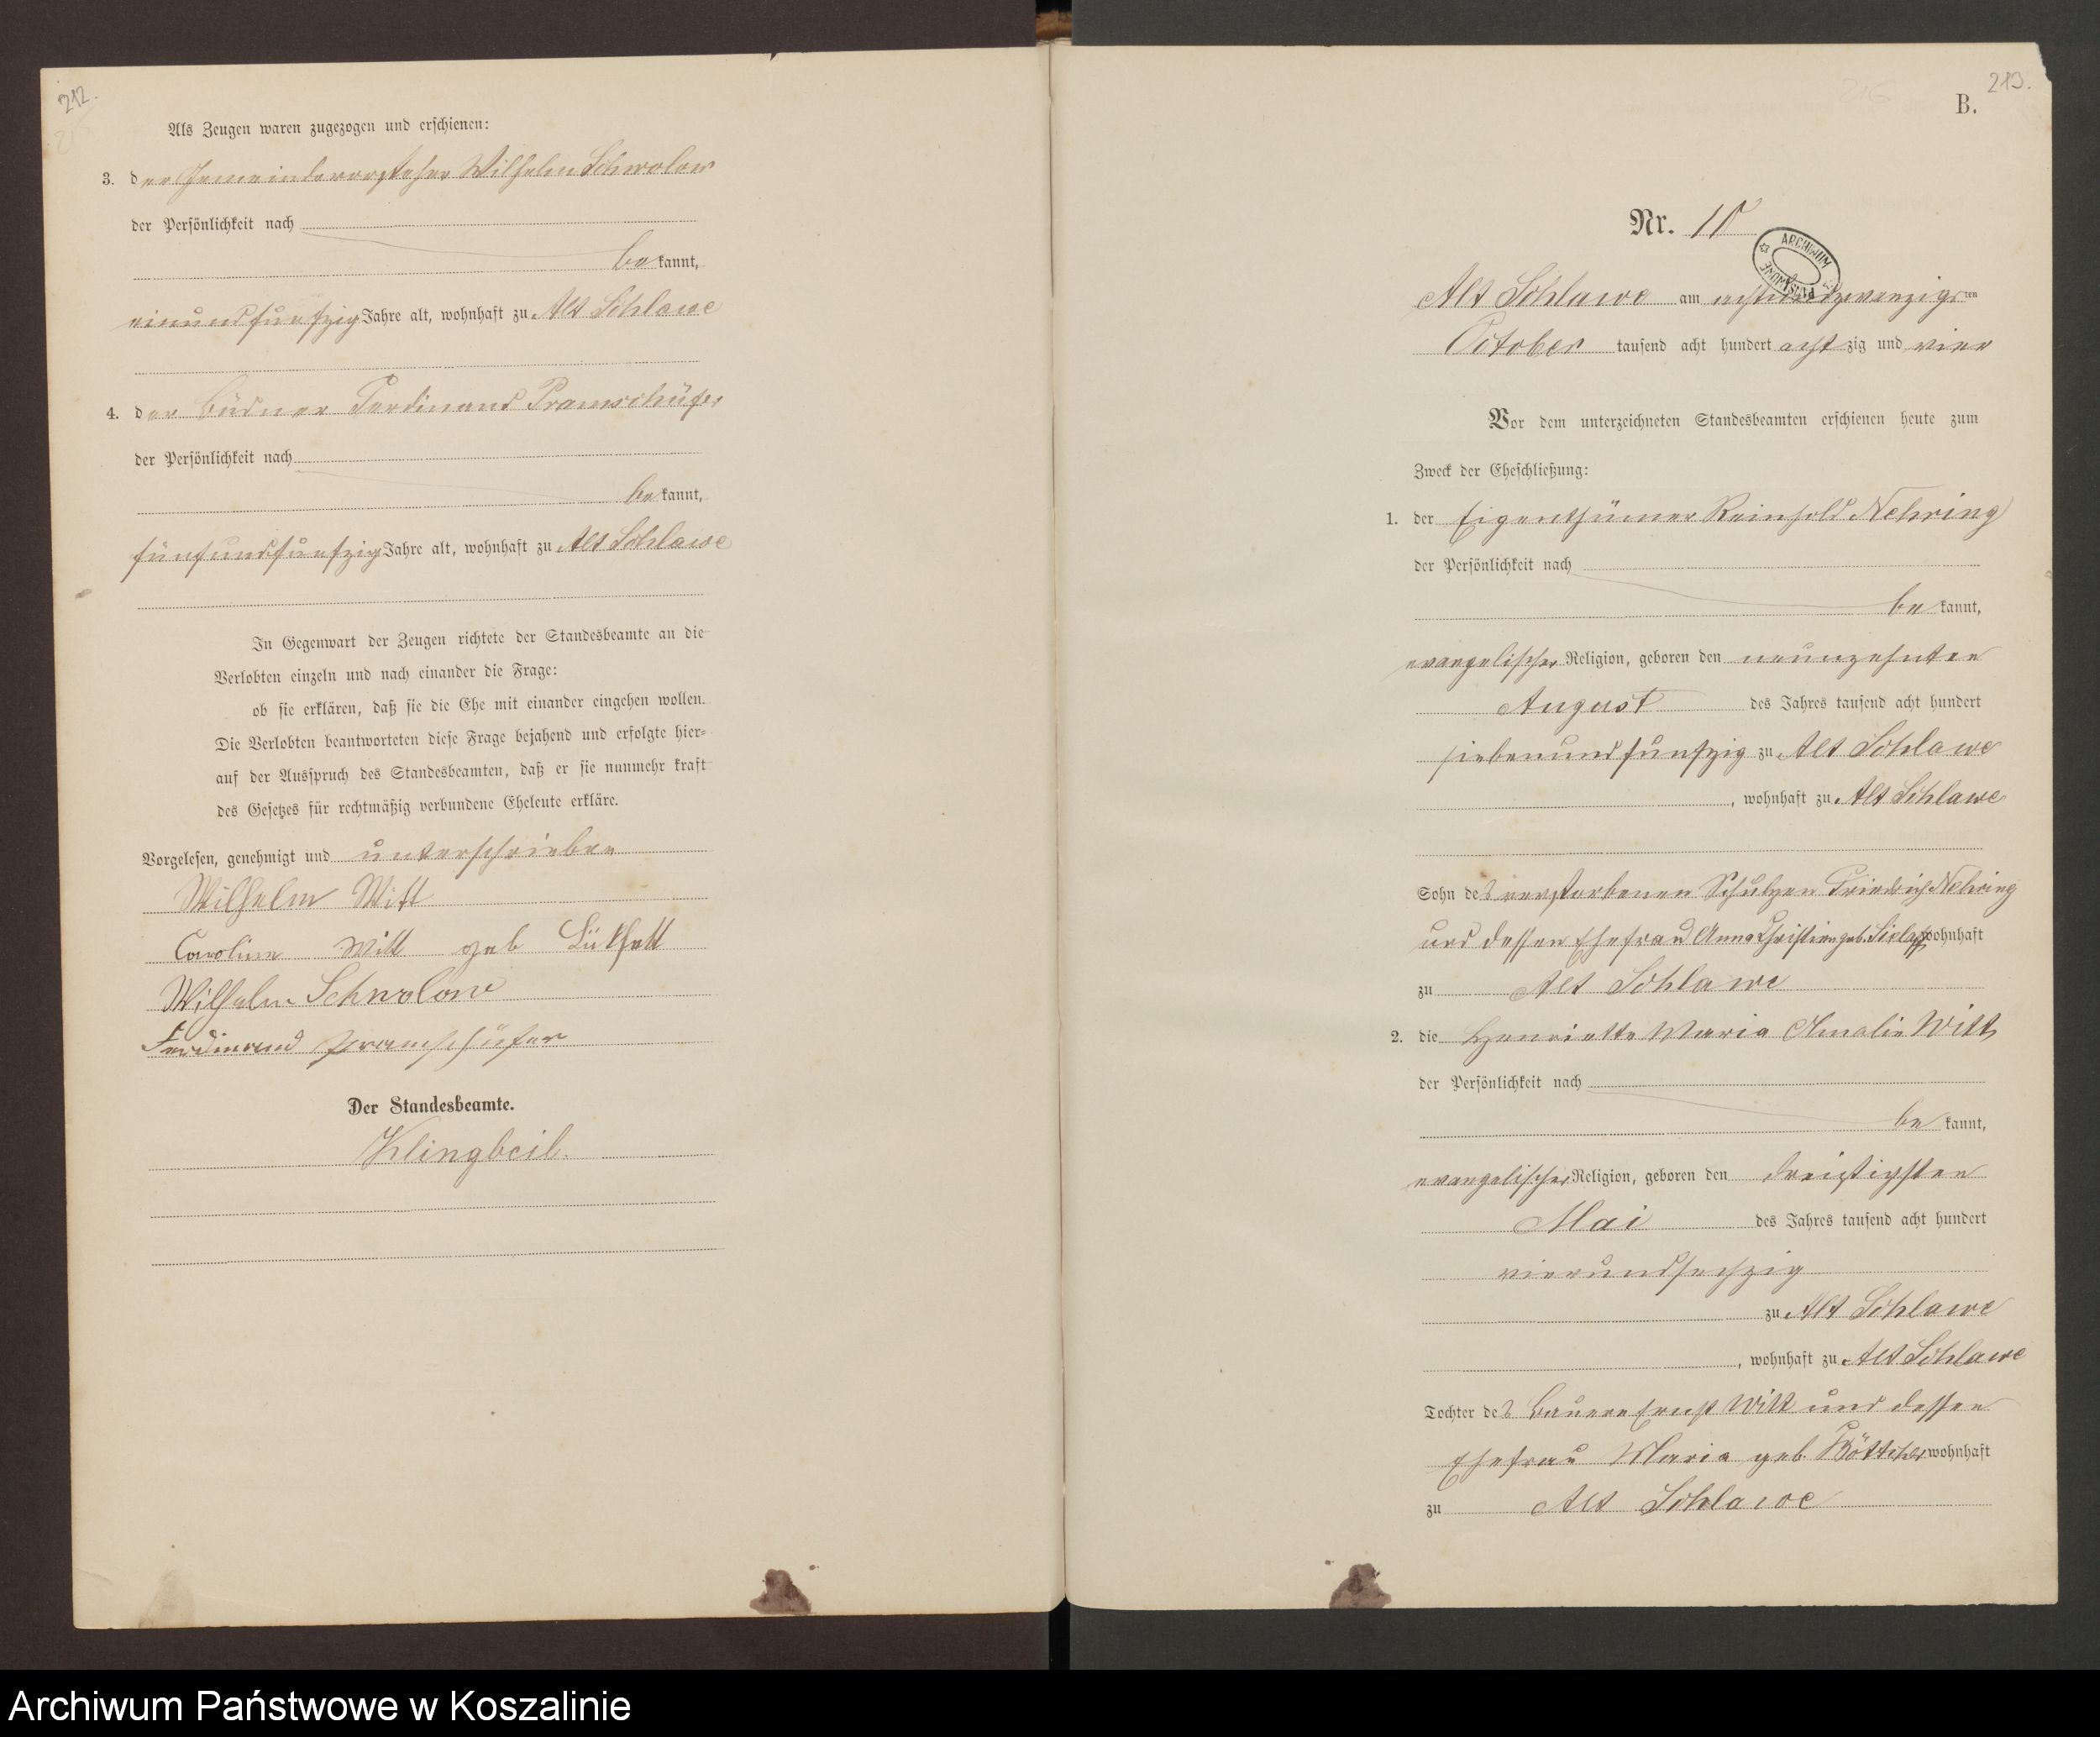 212.
Als Zeugen waren zugezogen und erschienen:
3. der Gemeindevorsteher Wilhelm Schwolow
der Persönlichkeit nach
be kannt,
einundfunfzig Jahre alt, wohnhaft zu Alt Schlawe
4. der Büdner Ferdinand Pramschüfer
der Persönlichkeit nach
be kannt,
fünfundfunfzig Jahre alt, wohnhaft zu Alt Schlawe
In Gegenwart der Zeugen richtete der Standesbeamte an die
Verlobten einzeln und nach einander die Frage:
ob sie erklären, daß sie die Ehe mit einander eingehen wollen.
Die Verlobten beantworteten diese Frage bejahend und erfolgte hier-
auf der Ausspruch des Standesbeamten, daß er sie nunmehr kraft
des Gesetzes für rechtmäßig verbundene Eheleute erkläre.
Vorgelesen, genehmigt und unterschrieben
Wilhelm Witt
Caroline Witt geb
Wilhelm Schwolow
Ferdinand Pramschüfer
Der Standesbeamte.
Klingbeil.
213.
B.
Nr.
ARCHIWUM PAŃSTWOWE
Alt Schlawe am achtundzwanzigsten
October tausend acht hundert achtzig und vier
Vor dem unterzeichneten Standesbeamten erschienen heute zum
Zweck der Eheschließung:
1. der Eigenthümer Reinhold Nehring
der Persönlichkeit nach
be kannt,
evangelischer Religion, geboren den neunzehnten
August des Jahres tausend acht hundert
siebenundfunfzig zu Alt Schlawe
, wohnhaft zu Alt Schlawe
Sohn des verstorbenen Schulzen Friedrich Nehring
und dessen Ehefrau Anna Christine geb. wohnhaft
zu Alt Schlawe
2. die Henriette Maria Amalie Witt
der Persönlichkeit nach
be kannt,
evangelischer Religion, geboren den dreißigsten
Mai des Jahres tausend acht hundert
vierundsechzig
zu Alt Schlawe
, wohnhaft zu Alt Schlawe
Tochter des Bauern Ernst Witt und dessen
Ehefrau Maria geb. Böttcher wohnhaft
zu Alt Schlawe
Archiwum Państwowe w Koszalinie